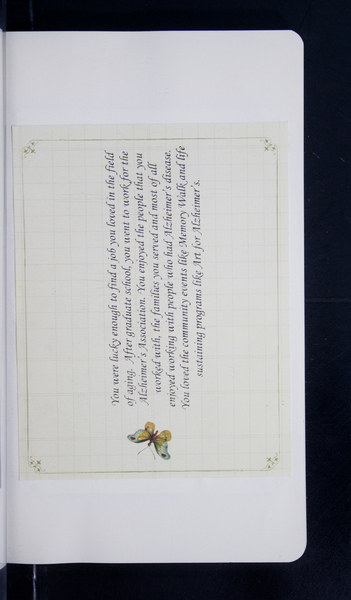 You were lucky enough to find a job you loved in the field
of aging. After graduate school, you went to work for the
Alzheimer's Association. You enjoyed the people that you
worked with, the families you served and most of all
enjoyed working with people who had Alzheimer's disease.
You loved the community events like Memory Walk and life
sustaining programs like Art for Alzheimer's.